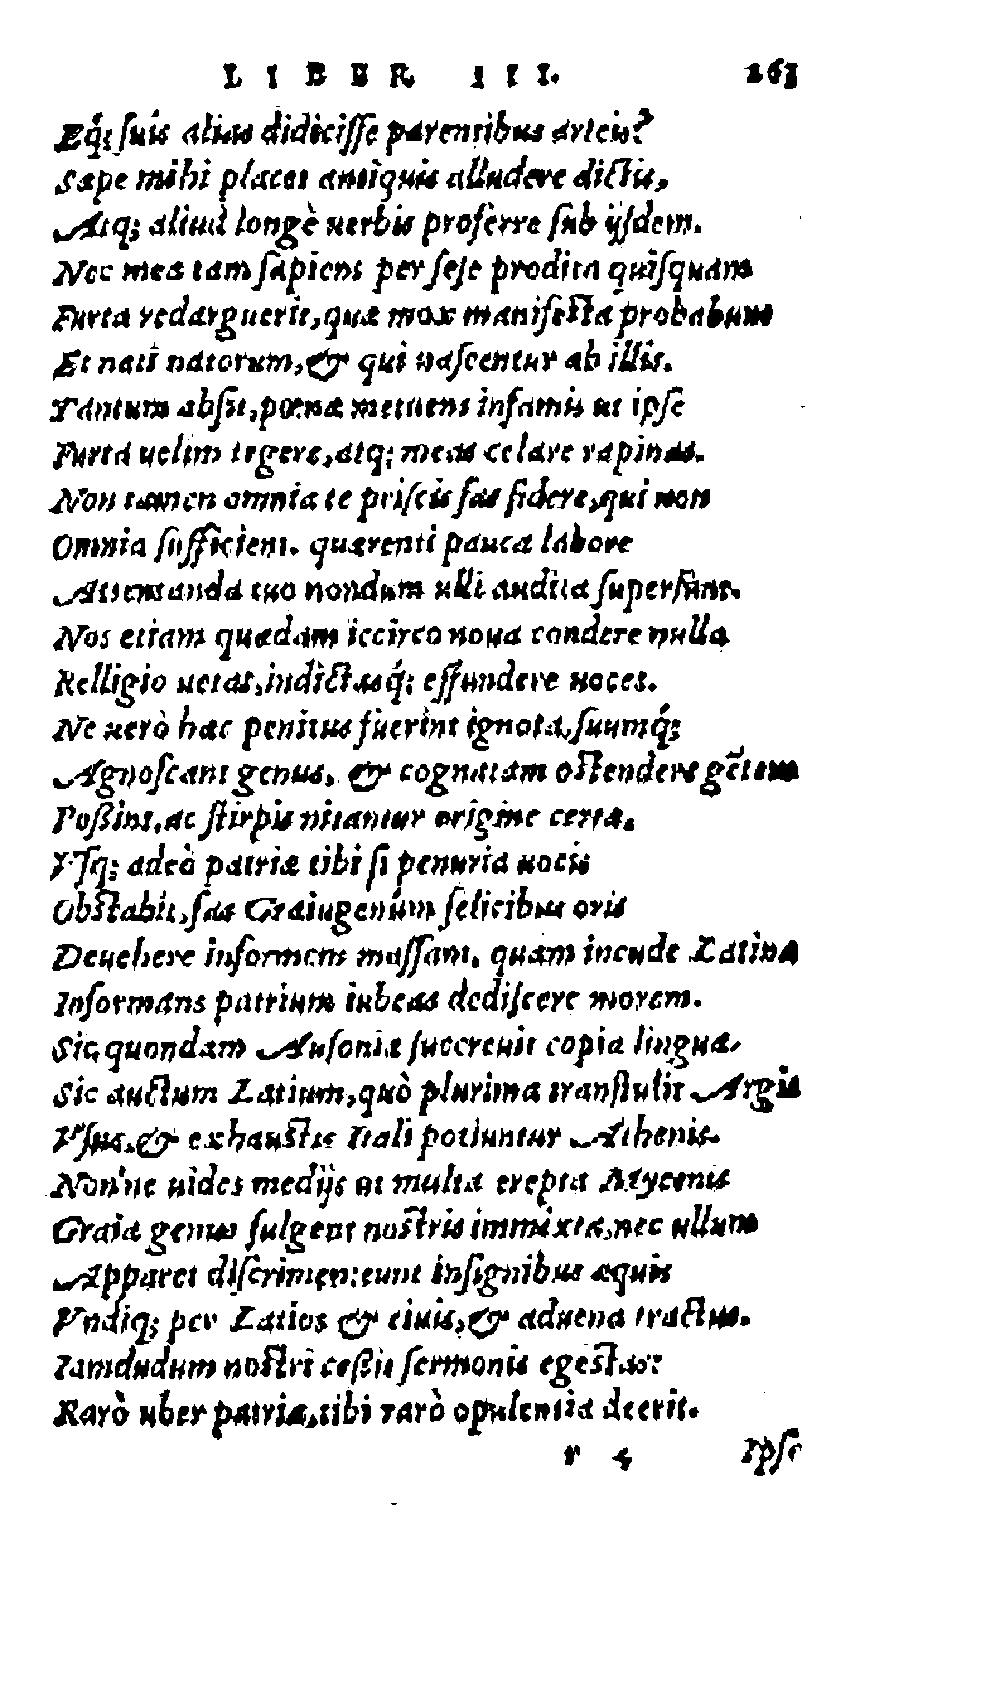 LIBER III. 263
Eq́; suis alius didicisse parentibus artem?
Sæpe mihi placet antiquis alludere dictis,
Atq; aliud longè uerbis proferre sub ijsdem.
Nec mea tam sapiens per sese prodita quisquam
Furta redarguerit, quæ mox manifesta probabunt
Et nati natorum, & qui nascentur ab illis.
Tantum absit, pœnæ metuens infamis ut ipse
Furta uelim tegere, atq; meas celare rapinas.
Non tamen omnia te priscis fas fidere, qui non
Omnia sufficient. quærenti pauca labore
Attentanda tuo nondum ulli audita supersunt.
Nos etiam quædam iccirco noua condere nulla
Relligio uetat, indictasq́; effundere uoces.
Ne uerò hæc penitus fuerint ignota, suumq́;
Agnoscant genus, & cognatam ostendere gẽtem
Possint, ac stirpis nitantur origine certa.
Vsq; adeò patriæ tibi si penuria uocis
Obstabit, fas Graiugenûm felicibus oris
Deuehere informem massam, quam incude Latina
Informans patrium iubeas dediscere morem.
Sic quondam Ausoniæ succreuit copia linguæ,
Sic auctum Latium, quò plurima transtulit Argis
Vsus, & exhaustis Itali potiuntur Athenis.
Nonne uides medijs ut multa erepta Mycenis
Graia genus fulgent nostris immixta, nec ullum
Apparet discrimen: eunt insignibus æquis
Vndiq; per Latios & ciuis, & aduena tractus.
Iamdudum nostri cessit sermonis egestas:
Rarò uber patriæ, tibi rarò opulentia deerit.
r 4 Ipse